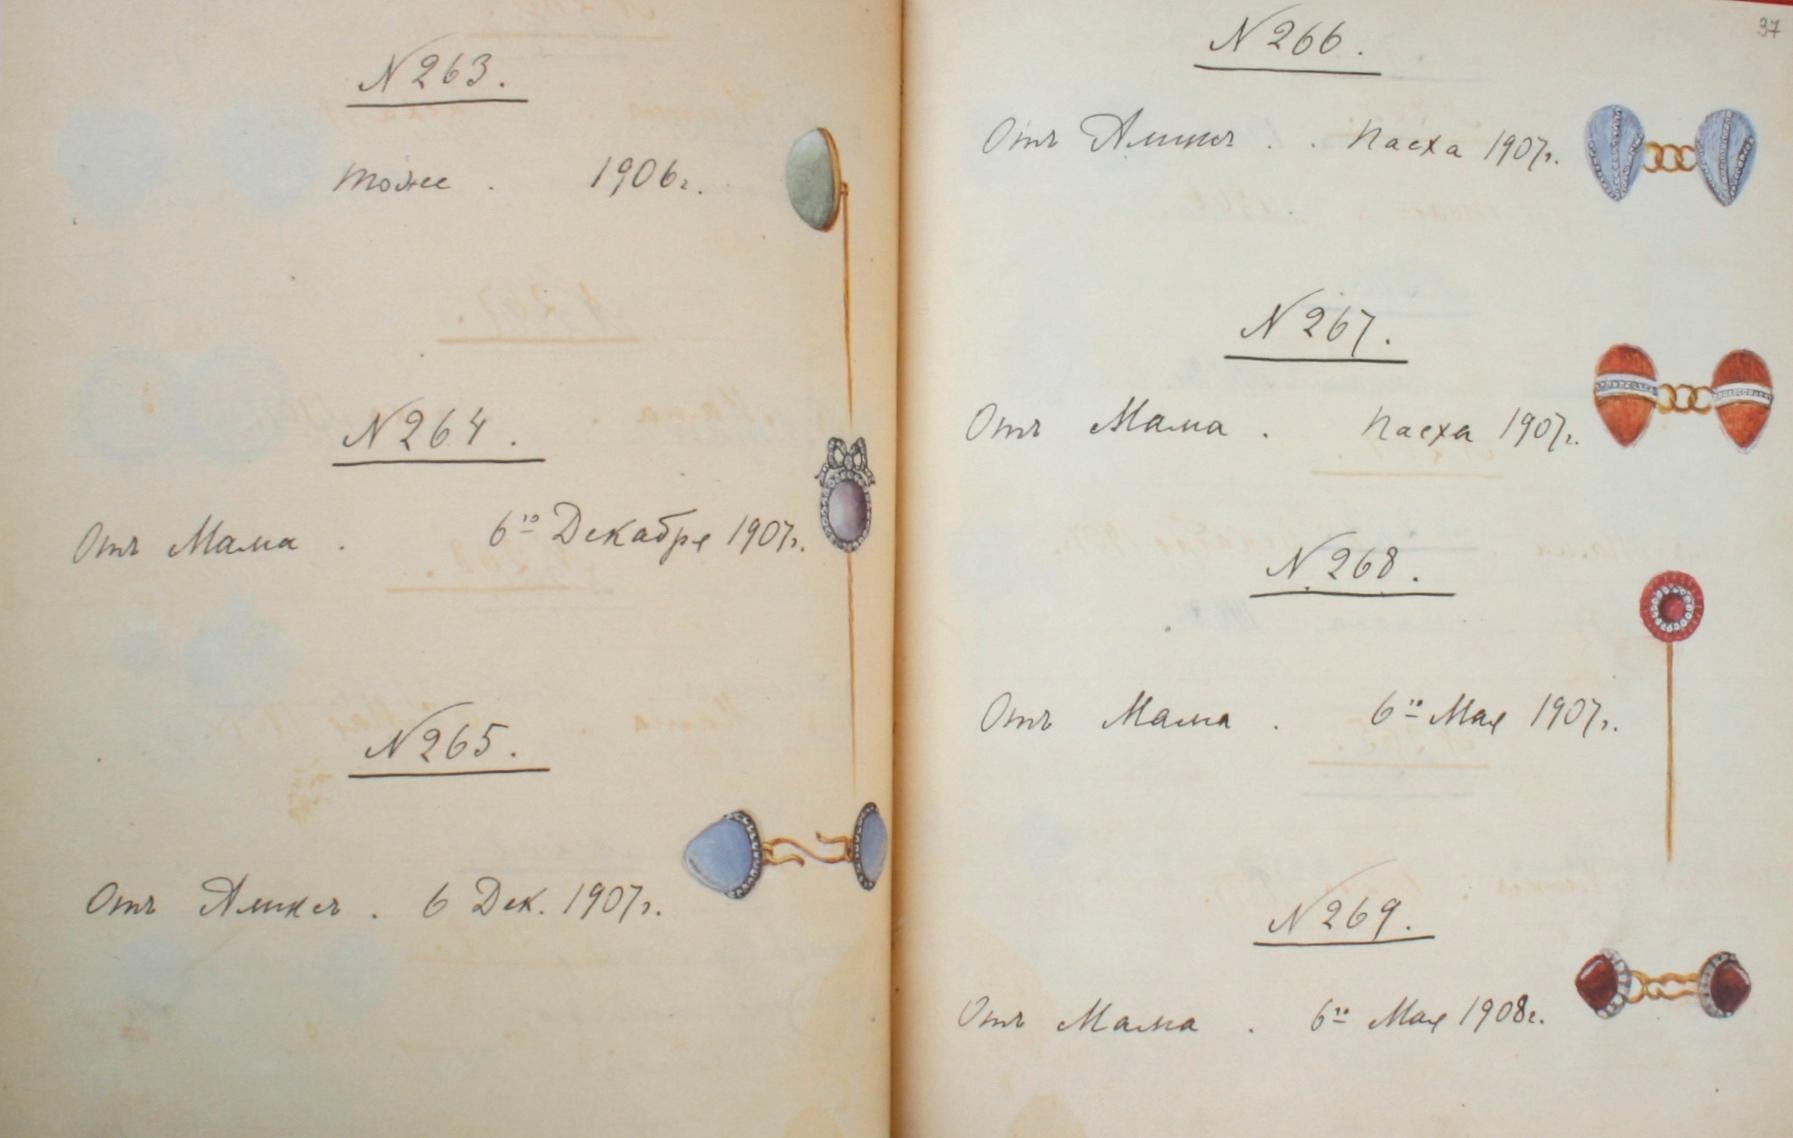 N 263.
Тоже. 1906г.
N 264.
Отъ Мама. 6го Декабря 1907г.
N 265.
Отъ Аликсъ. 6 Дек. 1907г.
37
N 266.
Отъ Аликсъ.. Пасха 1907г.
N 267.
Отъ Мама. Пасха 1907г.
N 268.
Отъ Мама. 6го Мая 1907г.
N 269.
Отъ Мама. 6го Мая 1908г.